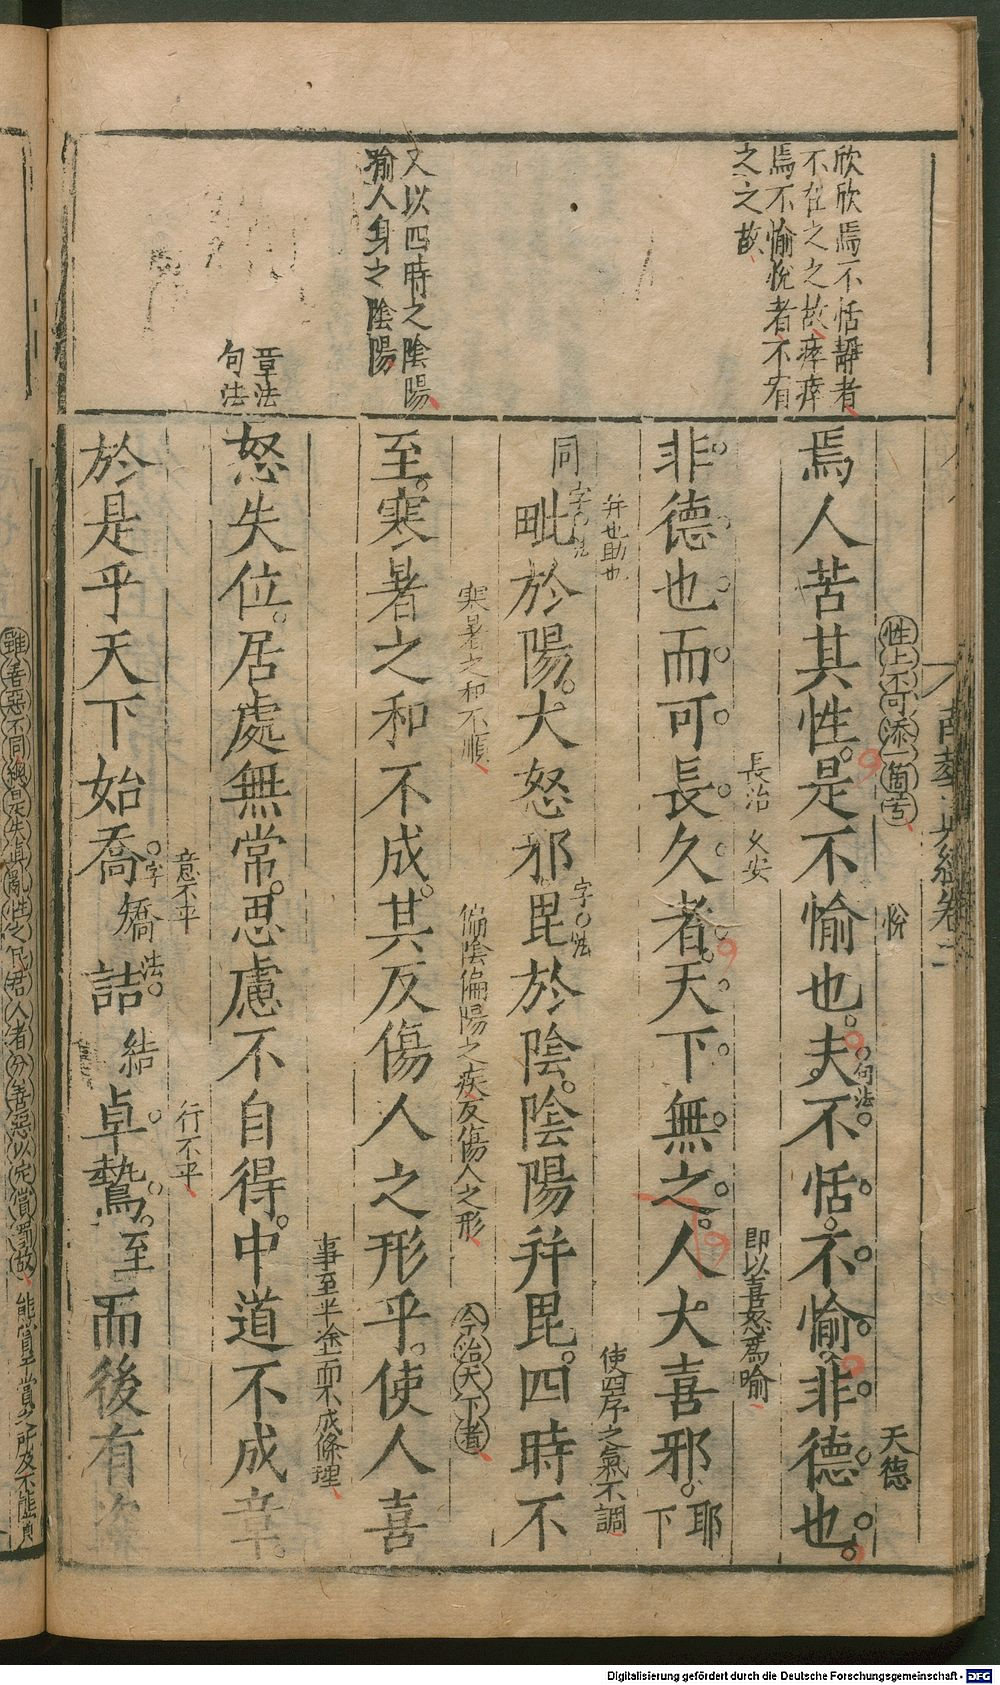 欣欣焉不恬靜者
不在之之故瘁瘁
焉不愉悅者不宥
之之故
又以四時之陰陽
喻人身之陰陽
章法
句法
南華真經卷二
性上不可添一箇苦
悅
天德
焉人苦其性是不愉也夫不恬不愉非德也
句法
長治久安
即以喜怒為喻
非德也而可長久者天下無之人大喜邪耶下
并也助也
使四序之氣不調
同毗於陽大怒邪毘於陰陰陽并毘四時不
字法
字法
寒暑之和不順
偏陰偏陽之疾反傷人之形
今治天下者
至寒暑之和不成其反傷人之形乎使人喜
事至半途而不成條理
怒失位居處無常思慮不自得中道不成章
意不平
行不平
於是乎天下始喬矯詰結卓驇至而後有盜
字法
雖善惡不同總是失真亂性之民君人者分善惡以定賞罰故
能賞至賞之所及不能賞
Digitalisierung gefördert durch die Deutsche Forschungsgemeinschaft - DFG